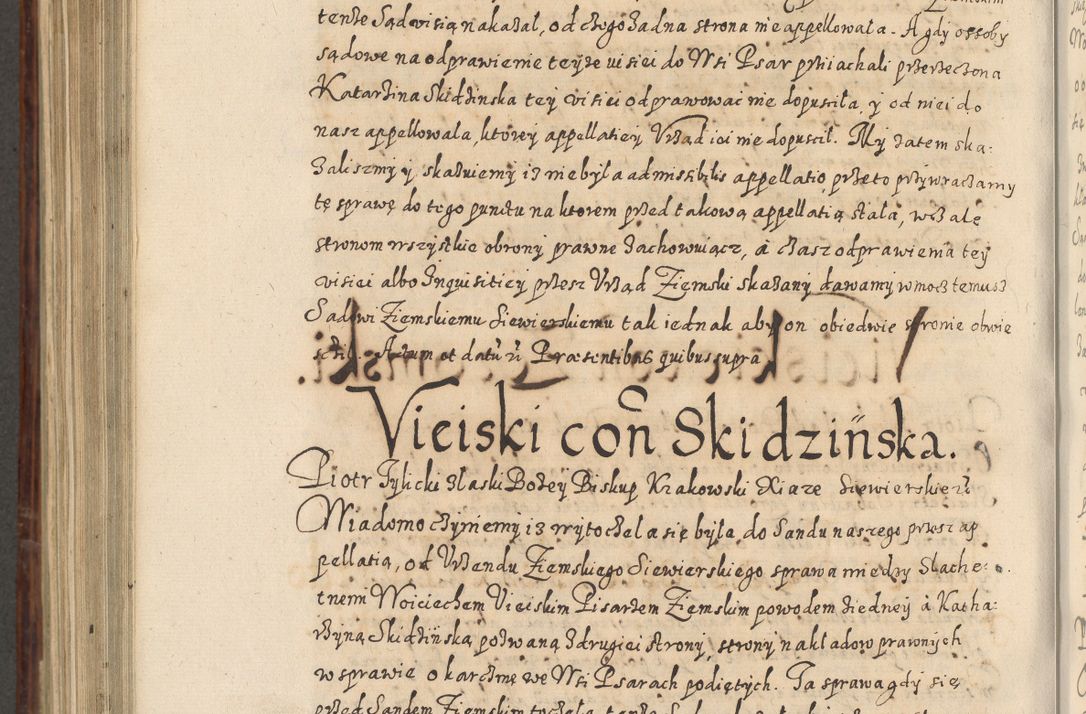 tenże Sąd wisią nakazał, od czego żadna strona nie appellowała. A gdy ossoby
sądowe na odprawienie teyże visiei do Wsi Psar przyiachali przerzeczona
Katarzina Skidzinska tey visiei odprawować nie dopusciła y od niei do
nasz appellowala, ktorey appellatiey Vrząd iei nie dopuscił. My zatem ska:
zaliszmy y skazuiemy iz nie była admissibilis appellatio, przeto przywraczamy
tę sprawę do tego punctu na ktorem przed takową appellatią stała, wczalę
stronom wszystkie obrony prawne zachowuiącz, à czasz odprawienia tey
visiei albo Inquisitiey przesz Vrząd Ziemski skazany dawamy w mocz temusz
Sądowi Ziemskiemu Siewierskiemu tak iednak aby on obiedwie stronie obwie
Actum et datũ ũ Præsentibus quibus supra
Vieiski coñ Skidzińska.
Piotr Tylicki z łaski Bożey Biskup Krakowski Xiaze Siewierskie
Wiadomo czyniemy iz wytoczela się była do Sandu naszego przesz ap
pellatią, od Vrzendu Ziemskiego Siewierskiego sprawa miedzy Slache:
tnem Woiciechem Vieiskim Pisarzem Ziemskim powodem ziedney à Katha:
rzyną Skidzińską pozwaną z drugiei strony, strony nakładow prawnych
w sprawie o karczmę we Wsi Psarach podiętych. Ta sprawa gdy się
przed Sandem Ziemskim toczeła